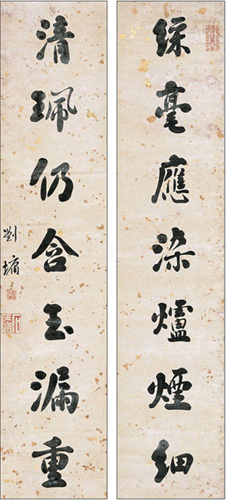 綵毫應染爐煙細
清珮仍含玉漏重
劉墉